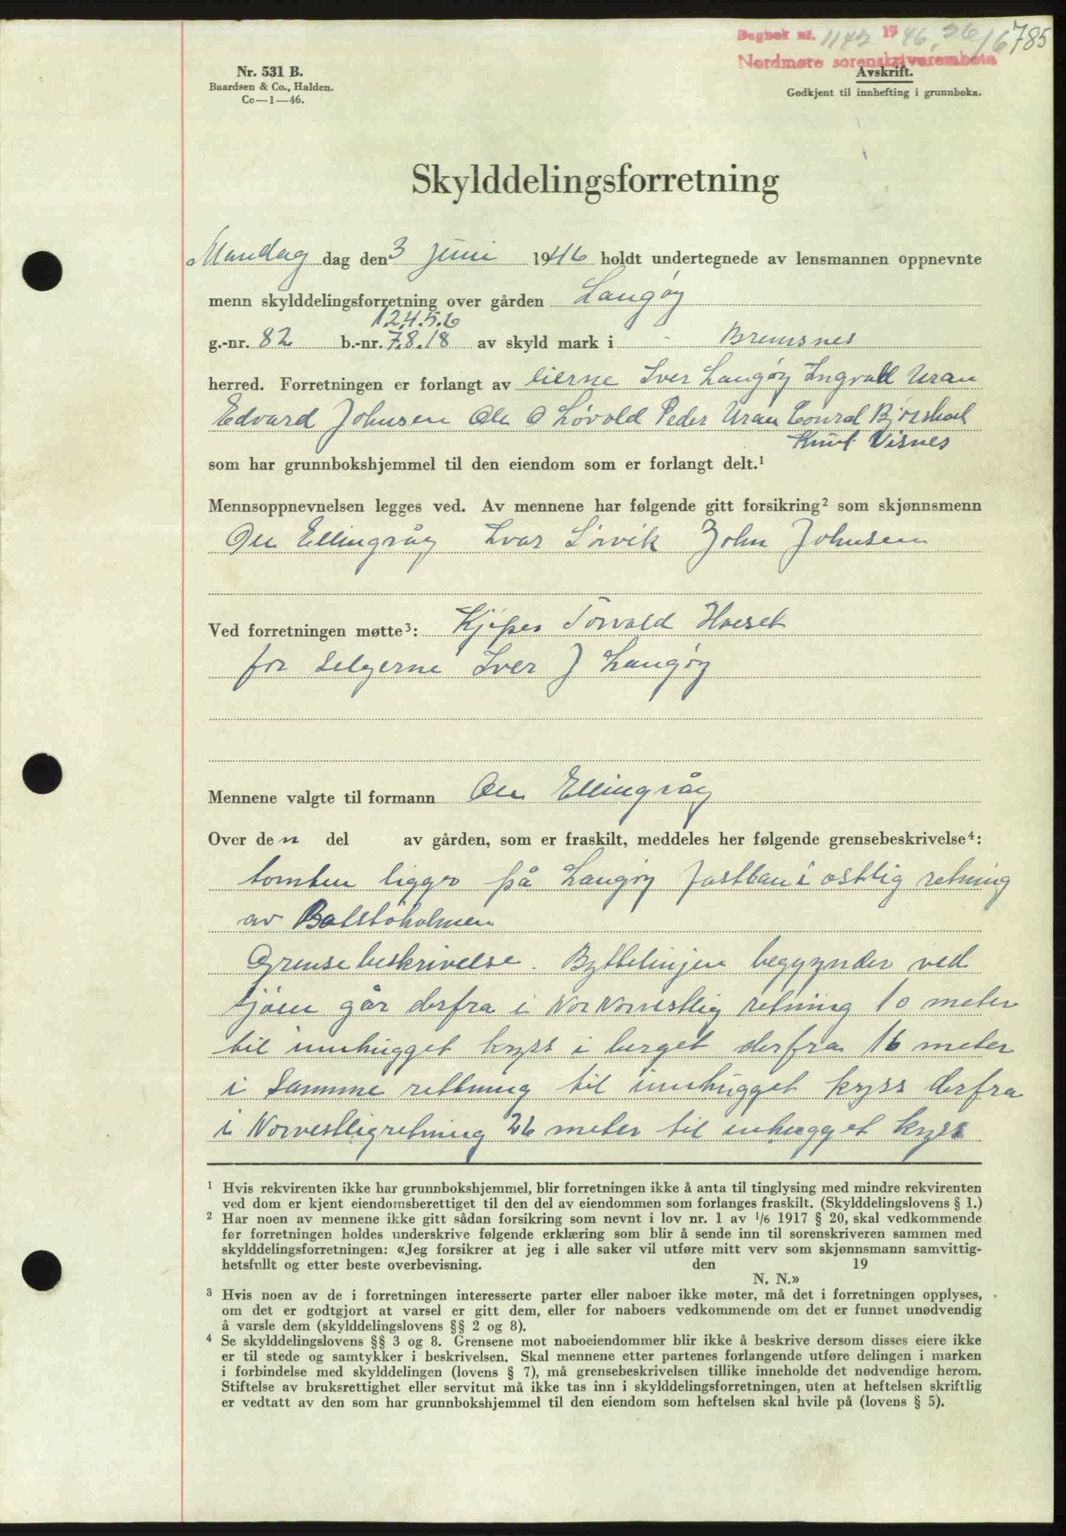 Dagbok nr. 1142 1946, 26/6 785
Nordmøre sorenskriverembete
Nr. 531 B.
Baardsen & Co., Halden.
Cc—1—46.
Avskrift.
Godkjent til innhefting i grunnboka.
Skylddelingsforretning
Mandag dag den 3 juni 1946 holdt undertegnede av lensmannen oppnevnte
menn skylddelingsforretning over gården Langøy
1.2.4.5.6
g.-nr. 82 b.-nr. 7.8.18 av skyld mark i Bremsnes
herred. Forretningen er forlangt av eierne Iver Langøy Ingvald Uran
Edvard Johnsen Ole O Løvold Peder Uran Conrad Bjørshol
Knut Visnes
som har grunnbokshjemmel til den eiendom som er forlangt delt.¹
Mennsoppnevnelsen legges ved. Av mennene har følgende gitt forsikring² som skjønnsmenn
Ole Ellingråy Ivar Sørvik John Johnsen
Ved forretningen møtte³: Kjøper Torvald Hoeset
for selgerne Iver J Langøy
Mennene valgte til formann Ole Ellingråy
Over den del av gården, som er fraskilt, meddeles her følgende grensebeskrivelse⁴:
tomten ligger på Langøy fastland i østlig retning
av Batstøholmen
Grensebeskrivelse. Byttelinjen begynder ved
sjøen går derfra i Nor Norvestlig retning 10 meter
til innhugget kryss i berget derfra 16 meter
i samme rettning til innhugget kryss derfra
i Norvestligretning 26 meter til inhugget kryss
¹ Hvis rekvirenten ikke har grunnbokshjemmel, blir forretningen ikke å anta til tinglysing med mindre rekvirenten
ved dom er kjent eiendomsberettiget til den del av eiendommen som forlanges fraskilt. (Skylddelingslovens § 1.)
² Har noen av mennene ikke gitt sådan forsikring som nevnt i lov nr. 1 av ¹/₆ 1917 § 20, skal vedkommende
før forretningen holdes underskrive følgende erklæring som blir å sende inn til sorenskriveren sammen med
skylddelingsforretningen: «Jeg forsikrer at jeg i alle saker vil utføre mitt verv som skjønnsmann samvittig-
hetsfullt og etter beste overbevisning. den 19
N. N.»
³ Hvis noen av de i forretningen interesserte parter eller naboer ikke møter, må det i forretningen opplyses,
om det er godtgjort at varsel er gitt dem, eller for naboers vedkommende om det er funnet unødvendig
å varsle dem (skylddelingslovens §§ 2 og 8).
⁴ Se skylddelingslovens §§ 3 og 8. Grensene mot naboeiendommer blir ikke å beskrive dersom disses eiere ikke
er til stede og samtykker i beskrivelsen. Skal mennene etter partenes forlangende utføre delingen i marken
i forbindelse med skylddelingen (lovens § 7), må grensebeskrivelsen tillike inneholde det nødvendige herom.
Stiftelse av bruksrettighet eller servitut må ikke tas inn i skylddelingsforretningen, uten at heftelsen skriftlig
er vedtatt av den som har grunnbokshjemmel til den eiendom som heftelsen skal hvile på (lovens § 5).